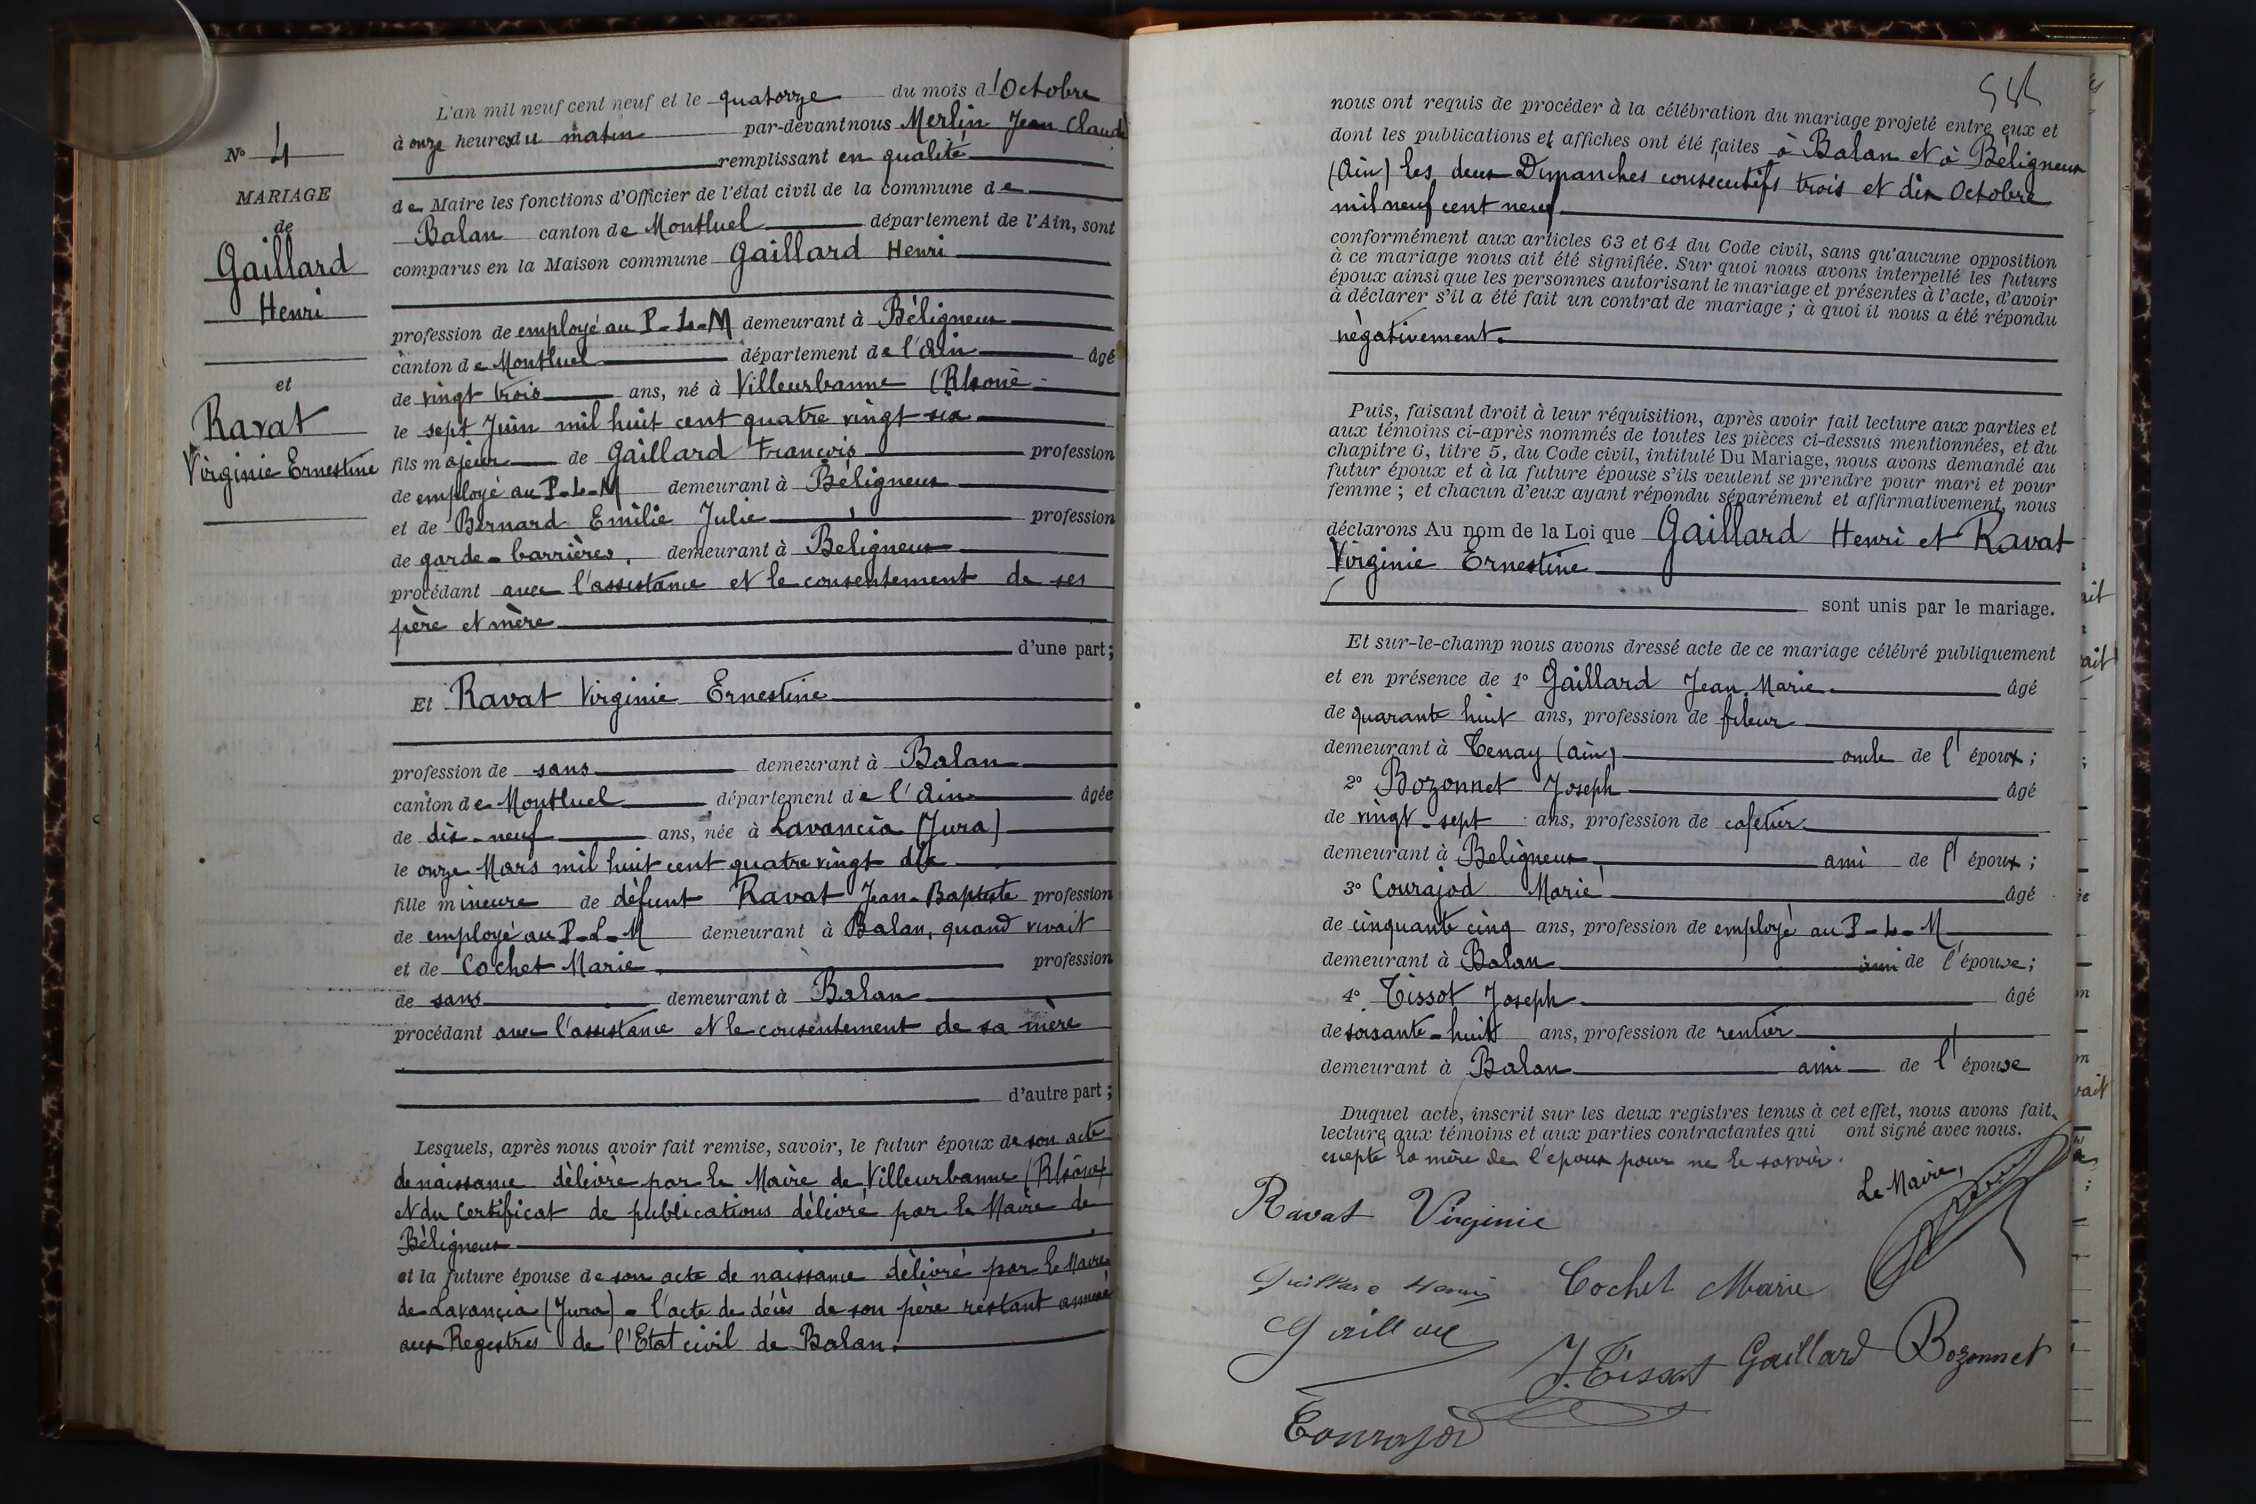 L'an mil neuf cent neuf et le quatorze du mois d'Octobre
à onze heures du matin par-devant nous Merlin Jean Claude
remplissant en qualité
de Maire les fonctions d'Officier de l'état civil de la commune de
Balan canton de Montluel département de l'Ain, sont
comparus en la Maison commune Gaillard Henri
profession de employé au P-L-M demeurant à Béligneux
canton de Montluel département de l'Ain âgé
de vingt trois ans, né à Villeurbanne (Rhône
le sept Juin mil huit cent quatre vingt six
fils majeur de Gaillard François profession
de employé au P-L-M demeurant à Béligneux
et de Bernard Emilie Julie profession
de garde-barrières, demeurant à Beligneux
procédant avec l'assistance et le consentement de ses
père et mère
d'une part;
Et Ravat Virginie Ernestine
profession de sans demeurant à Balan
canton de Montluel département de l'Ain âgée
de dix-neuf ans, née à Lavancia (Jura)
le onze Mars mil huit cent quatre vingt dix
fille mineure de défunt Ravat Jean-Baptiste profession
de employé au P-L-M demeurant à Balan, quand vivait
et de Cochet Marie profession
de sans demeurant à Balan
procédant avec l'assistance et le consentement de sa mère
d'autre part;
Lesquels, après nous avoir fait remise, savoir, le futur époux de son acte
de naissance délivré par le Maire de Villeurbanne (Rhône)
et du Certificat de publications délivré par le Maire de
Béligneux
et la future épouse de son acte de naissance délivré par le Maire
de Lavancia (Jura) - l'acte de décès de son père restant annexé
aux Registres de l'Etat civil de Balan.
N° 4
MARIAGE
de
Gaillard
Henri
et
Ravat
Virginie Ernestine
nous ont requis de procéder à la célébration du mariage projeté entre eux et
dont les publications et affiches ont été faites à Balan et à Béligneux
(Ain) les deux Dimanches consecutifs trois et dix Octobre
mil neuf cent neuf
conformément aux articles 63 et 64 du Code civil, sans qu'aucune opposition
à ce mariage nous ait été signifiée. Sur quoi nous avons interpellé les futurs
époux ainsi que les personnes autorisant le mariage et présentes à l'acte, d'avoir
à déclarer s'il a été fait un contrat de mariage; à quoi il nous a été répondu
négativement.
Puis, faisant droit à leur réquisition, après avoir fait lecture aux parties et
aux témoins ci-après nommés de toutes les pièces ci-dessus mentionnées, et du
chapitre 6, titre 5, du Code civil, intitulé Du Mariage, nous avons demandé au
futur époux et à la future épouse s'ils veulent se prendre pour mari et pour
femme; et chacun d'eux ayant répondu séparément et affirmativement, nous
déclarons Au nom de la Loi que Gaillard Henri et Ravat
Virginie Ernestine
sont unis par le mariage.
Et sur-le-champ nous avons dressé acte de ce mariage célébré publiquement
et en présence de 1° Gaillard Jean Marie âgé
de quarante huit ans, profession de fileur
demeurant à Tenay (Ain) oncle de l'époux;
2° Bozonnet Joseph âgé
de vingt-sept ans, profession de cafetier
demeurant à Beligneux ami de l'époux;
3° Courajod Marie âgé
de cinquante cinq ans, profession de employé au P-L-M
demeurant à Balan ami de l'épouse;
4° Tissot Joseph âgé
de soixante-huit ans, profession de rentier
demeurant à Balan ami de l'épouse
Duquel acte, inscrit sur les deux registres tenus à cet effet, nous avons fait
lecture aux témoins et aux parties contractantes qui ont signé avec nous.
excepté la mère de l'époux pour ne le savoir.
Le Maire,
Ravat Virginie
Gaillard Henri
Cochet Marie
Gaillard
J. Tissot
Gaillard
Bozonnet
Courajod